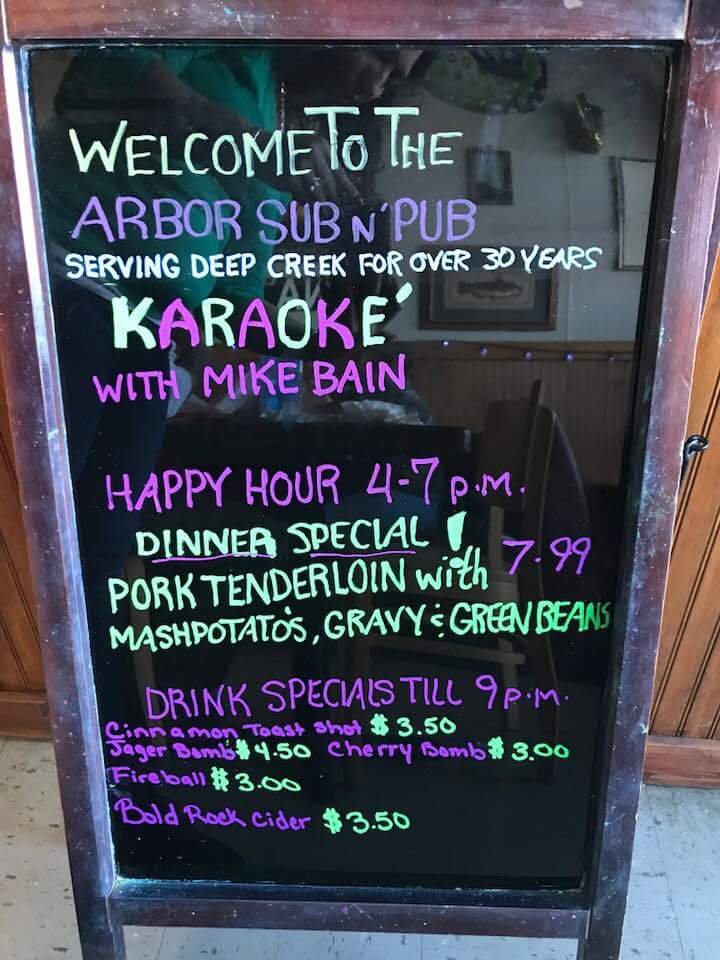 WELCOME TO THE
ARBOR SUB N' PUB
SERVING DEEP CREEK FOR OVER 30 YEARS
KARAOKE´
WITH MIKE BAIN
HAPPY HOUR 4-7 P.M.
DINNER SPECIAL !
PORK TENDERLOIN with 7.99
MASHPOTATO'S, GRAVY & GREEN BEANS
DRINK SPECIALS TILL 9 P.M.
Cinnamon Toast Shot $3.50
Jager Bomb $4.50 Cherry Bomb $3.00
Fireball $3.00
Bold Rock Cider $3.50